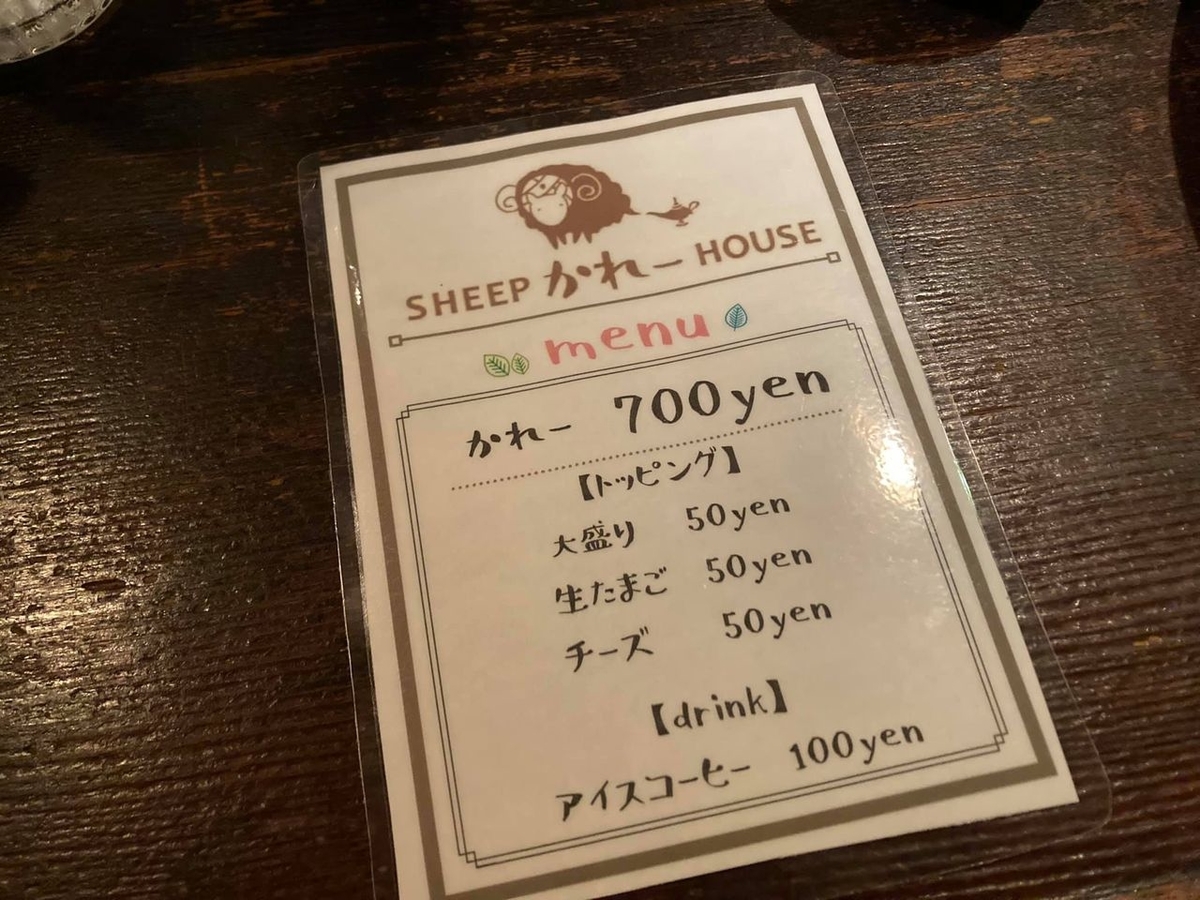 SHEEP かれー HOUSE
menu
かれー 700yen
【トッピング】
大盛り 50yen
生たまご 50yen
チーズ 50yen
【drink】
アイスコーヒー 100yen